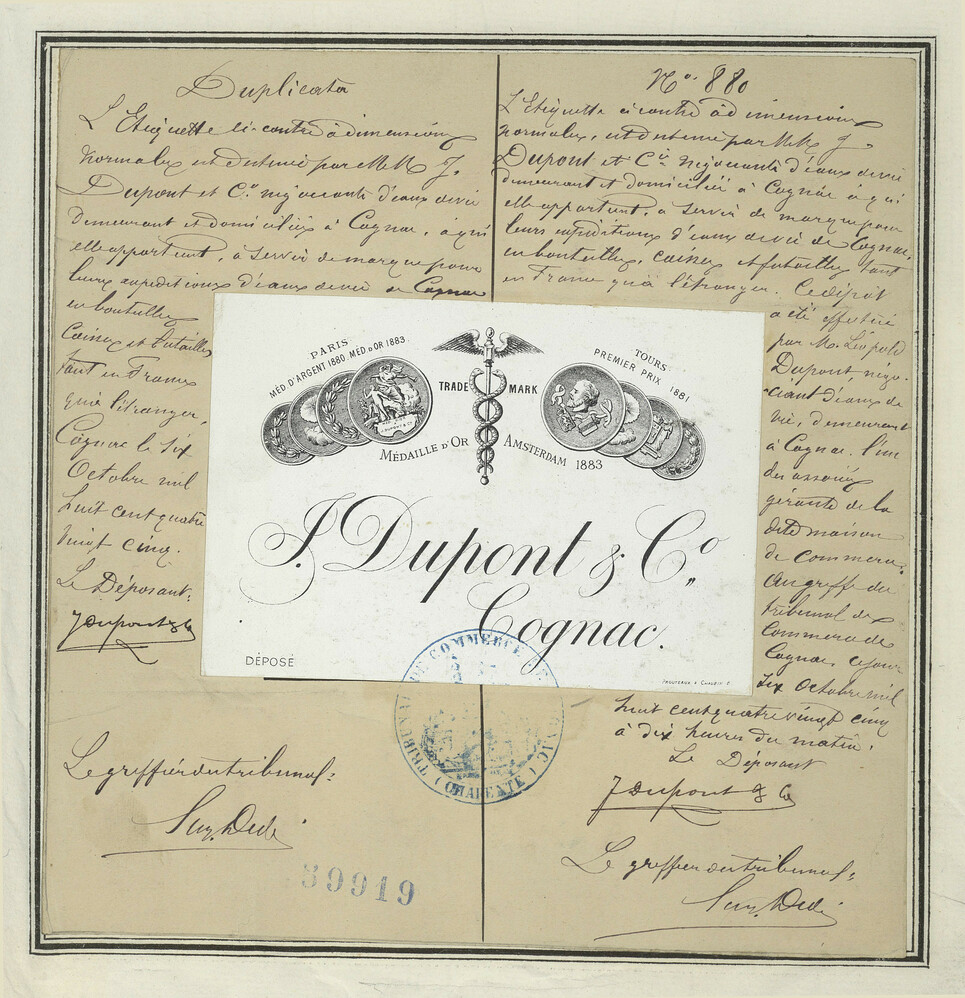 Duplicata
L'Etiquette ci-contre à dimensions
normales est destinée par MM J.
Dupont et Cie négociants d'eaux de vie
demeurant et domiciliés à Cognac, à qui
elle appartient, à servir de marque pour
leurs expéditions d'eaux de vie de Cognac
en bouteilles
Caisses et futailles
tant en France
qu'à l'étranger,
Cognac le six
Octobre mil
huit cent quatre
vingt cinq.
Le Déposant:
J Dupont & Co
Le greffier du tribunal:
39919
No. 880
L'Etiquette ci contre à dimensions
normales, est destinée par MM J.
Dupont et Cie négociants d'eaux de vie
demeurant et domiciliés à Cognac à qui
elle appartient, à servir de marque pour
leurs expéditions d'eaux de vie de Cognac,
en bouteilles, caisses et futailles tant
en France qu'à l'étranger. Ce dépôt
a été effectué
par M. Léopold
Dupont négo-
ciant d'eaux de
vie, demeurant
à Cognac. l'un
des associés
gérants de la
dite maison
de commerce.
Au greffe du
tribunal de
Commerce de
Cognac, ce jour
six Octobre mil
huit cent quatre vingt cinq
à dix heures du matin.
Le Déposant
J Dupont & Co
Le greffier du tribunal:
PARIS.
MÉD. D'ARGENT 1880. MÉD. D'OR 1883.
TRADE MARK
TOURS.
PREMIER PRIX 1881
J. DUPONT & Co
MÉDAILLE D'OR AMSTERDAM 1883
J. Dupont & Co.
Cognac.
DÉPOSÉ
TRIBUNAL DE COMMERCE DE COGNAC
(CHARENTE)